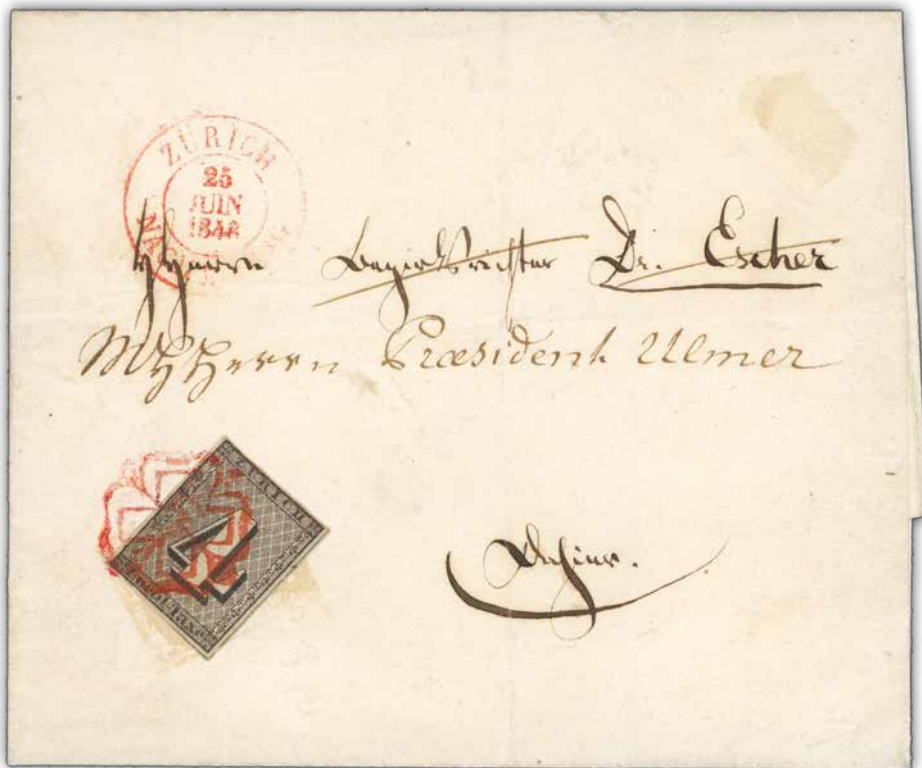 ZÜRICH
25
JUIN
184
HHerrn Bezirksrichter Dr. Escher
MHHerrn Præsident Ulmer
ZURICH
4
Dahier.